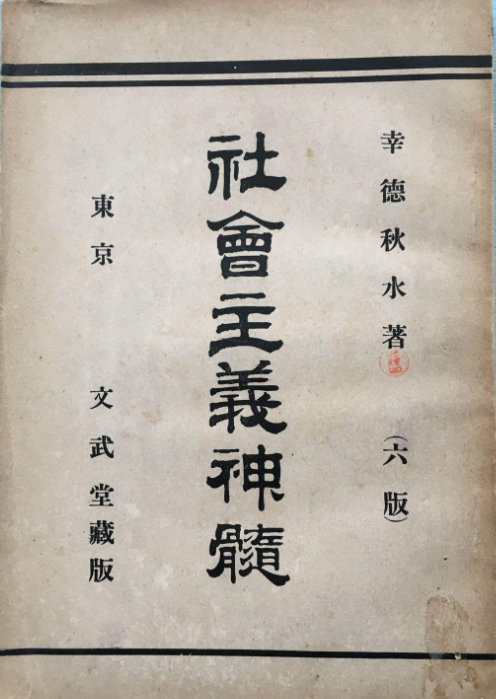 幸德秋水著
(六版)
社會主義神髓
東京 文武堂藏版